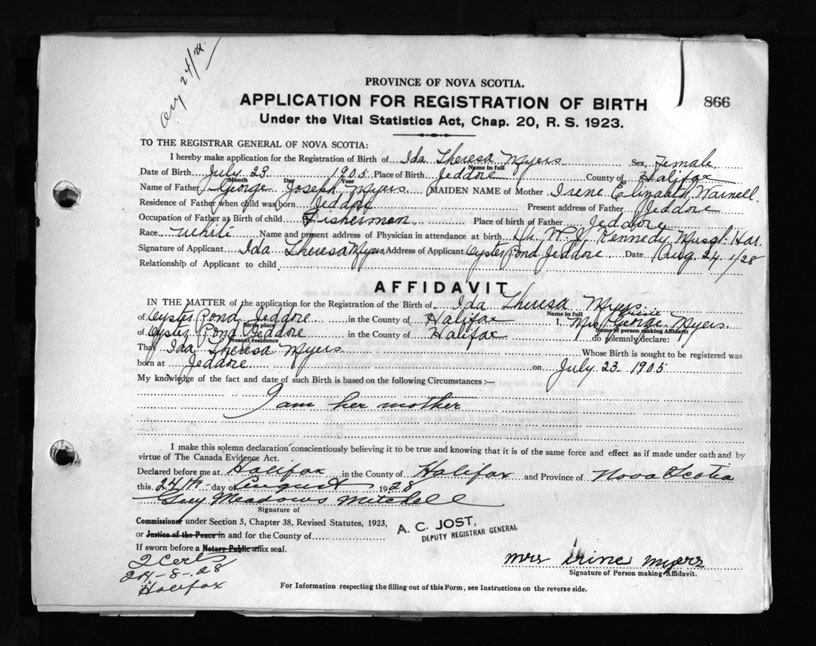 Aug 24/28.
PROVINCE OF NOVA SCOTIA.
APPLICATION FOR REGISTRATION OF BIRTH
866
Under the Vital Statistics Act, Chap. 20, R. S. 1923.
TO THE REGISTRAR GENERAL OF NOVA SCOTIA:
I hereby make application for the Registration of Birth of Ida Theresa Myers Sex Female
Name in full
Date of Birth July 23 1905 Place of Birth Jeddore County of Halifax
Month Day Year
Name of Father George Joseph Myers (MAIDEN NAME of Mother Irene Elizabeth Warnell
Residence of Father when child was born Jeddore Present address of Father Jeddore
Occupation of Father at Birth of child Fisherman Place of birth of Father Jeddore
Race White Name and present address of Physician in attendance at birth Dr. Kennedy Musqt. Har.
Signature of Applicant Ida Theresa Myers Address of Applicant Oyster Pond Jeddore Date Aug 24/28
Relationship of Applicant to child
AFFIDAVIT
IN THE MATTER of the application for the Registration of the Birth of Ida Theresa Myers
Name in full
of Oyster Pond Jeddore in the County of Halifax I, Mrs George Myers
Birth place
Name of person making Affidavit
of Oyster Pond Jeddore in the County of Halifax do solemnly declare:
Present residence
That Ida Theresa Myers Whose Birth is sought to be registered was
born at Jeddore on July 23 1905
My knowledge of the fact and date of such Birth is based on the following Circumstances :—
I am her mother
I make this solemn declaration conscientiously believing it to be true and knowing that it is of the same force and effect as if made under oath and by
virtue of The Canada Evidence Act.
Declared before me at Halifax in the County of Halifax and Province of Nova Scotia
this 24th day of August 1928
Guy Meadows Mitchell
Signature of
Commissioner under Section 5, Chapter 38, Revised Statutes, 1923,
or Justice of the Peace in and for the County of
A. C. JOST,
DEPUTY REGISTRAR GENERAL
If sworn before a Notary Public affix seal.
2 Certs
24-8-28
Halifax
mrs irine myers
Signature of Person making Affidavit.
For Information respecting the filling out of this Form, see Instructions on the reverse side.